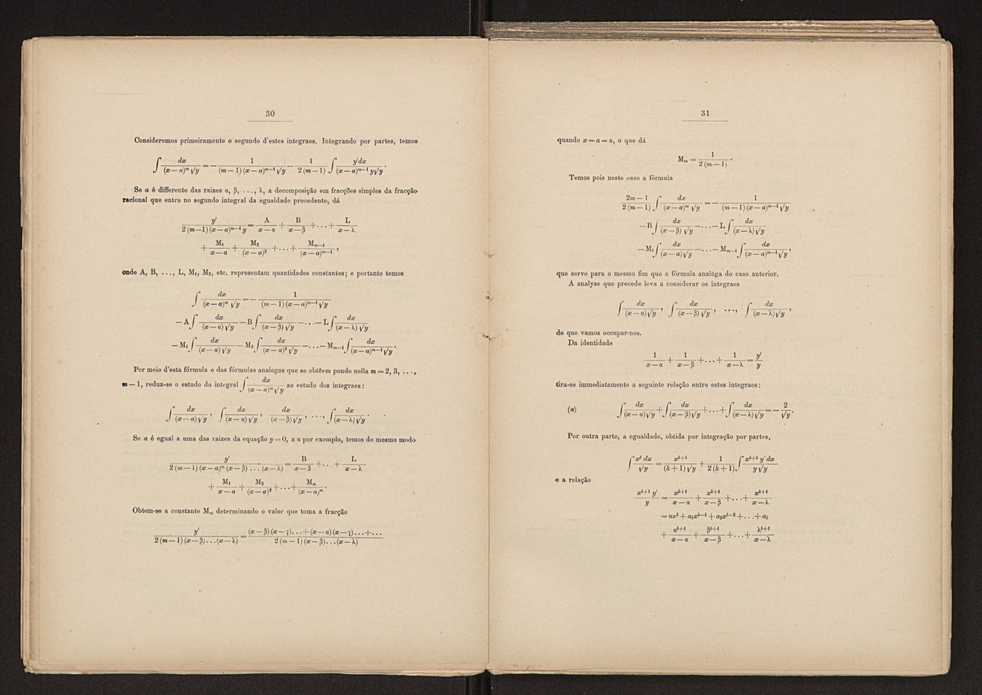 30
Consideremos primeiramente o segundo d'estes integraes. Integrando por partes, temos
∫ dx / (x−a)^m √y = − 1 / (m−1)(x−a)^{m−1} √y − 1 / 2(m−1) ∫ y'dx / (x−a)^{m−1} y√y.
Se a é differente das raizes α, β, . . ., λ, a decomposição em fracções simples da fracção
racional que entra no segundo integral da egualdade precedente, dá
y' / 2(m−1)(x−a)^{m−1} y = A / x−α + B / x−β + . . . + L / x−λ
+ M₁ / x−a + M₂ / (x−a)² + . . . + M_{m−1} / (x−a)^{m−1} ,
onde A, B, . . ., L, M₁, M₂, etc. representam quantidades constantes; e portanto temos
∫ dx / (x−a)^m √y = − 1 / (m−1)(x−a)^{m−1} √y
− A ∫ dx / (x−α)√y − B ∫ dx / (x−β)√y − . . . − L ∫ dx / (x−λ)√y
− M₁ ∫ dx / (x−a)√y − M₂ ∫ dx / (x−a)² √y − . . . − M_{m−1} ∫ dx / (x−a)^{m−1} √y.
Por meio d'esta fórmula e das fórmulas analogas que se obtêem pondo nella m = 2, 3, . . .,
m − 1, reduz-se o estudo do integral ∫ dx / (x−a)^m √y ao estudo dos integraes:
∫ dx / (x−a)√y , ∫ dx / (x−α)√y , dx / (x−β)√y , . . . , ∫ dx / (x−λ)√y .
Se a é egual a uma das raizes da equação y = 0, a α por exemplo, temos do mesmo modo
y' / 2(m−1)(x−a)^m (x−β) . . . (x−λ) = B / x−β + . . + L / x−λ
+ M₁ / x−α + M₂ / (x−a)² + . . . + M_m / (x−a)^m .
Obtem-se a constante M_m determinando o valor que toma a fracção
y' / 2(m−1)(x−β) . . . (x−λ) = (x−β)(x−γ) . . . + (x−α)(x−γ) . . . + . . . / 2(m−1)(x−β) . . . (x−λ)
31
quando x = a = α, o que dá
M_m = 1 / 2(m−1) .
Temos pois neste caso a fórmula
2m−1 / 2(m−1) ∫ dx / (x−a)^m √y = − 1 / (m−1)(x−a)^{m−1} √y
− B ∫ dx / (x−β)√y − . . . − L ∫ dx / (x−λ)√y
− M₁ ∫ dx / (x−a)√y − . . . − M_{m−1} ∫ dx / (x−a)^{m−1} √y ,
que serve para o mesmo fim que a fórmula analóga do caso anterior.
A analyse que precede leva a considerar os integraes
∫ dx / (x−α)√y , ∫ dx / (x−β)√y , . . ., ∫ dx / (x−λ)√y ,
de que vamos occupar-nos.
Da identidade
1 / x−α + 1 / x−β + . . . + 1 / x−λ = y' / y
tira-se immediatamente a seguinte relação entre estes integraes:
(a) ∫ dx / (x−α)√y + ∫ dx / (x−β)√y + . . . + ∫ dx / (x−λ)√y = − 2 / √y .
Por outra parte, a egualdade, obtida por integração por partes,
∫ x^k dx / √y = x^{k+1} / (k+1)√y + 1 / 2(k+1) ∫ x^{k+1} y' dx / y√y
e a relação
x^{k+1} y' / y = x^{k+1} / x−α + x^{k+1} / x−β + . . . + x^{k+1} / x−λ
= ax^k + a₁x^{k−1} + a₂x^{k−2} + . . . + a_k
+ α^{k+1} / x−α + β^{k+1} / x−β + . . . + λ^{k+1} / x−λ